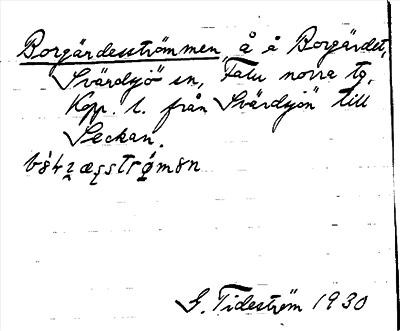 Borgärdesströmmen, å å Borgärdet,
Svärdsjö sn, Falu norra tg,
Kopp. l. från Svärdsjön till
Seckan.
G. Tideström 1930